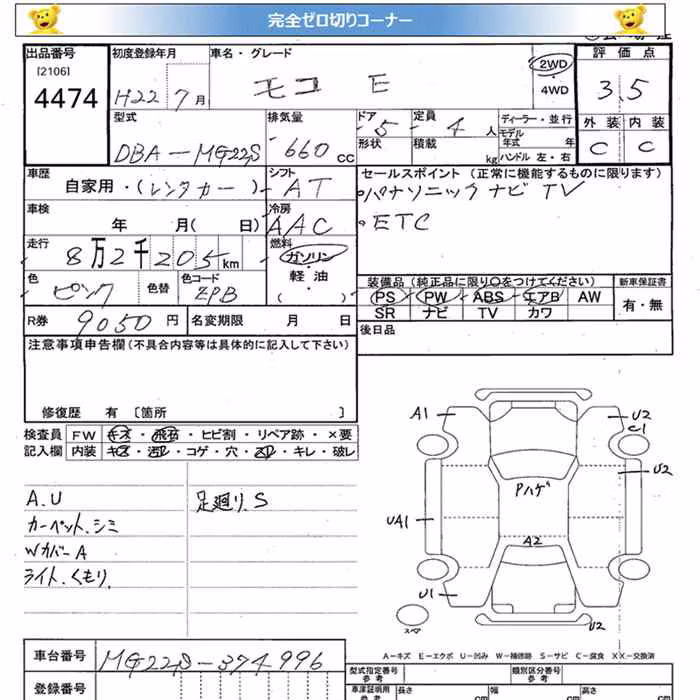 完全ゼロ切りコーナー
出品番号 初度登録年月 車名・グレード 2WD 4WD 評価点
[2106]
4474 H22 7月 モコ E 3.5
型式 排気量 ドア 定員 ディーラー・並行 外装 内装
DBA-MG22S 660cc 5 4人 モデル年式 年 C C
形状 積載 kg ハンドル 左・右
車歴 シフト セールスポイント (正常に機能するものに限ります)
自家用・(レンタカー) AT パナソニックナビ TV
車検 冷房 ・ETC
年 月( 日) AAC
走行 燃料
8万2千205km ガソリン・軽油
色 色替 色コード ( ) 装備品(純正品に限り○をつけてください) 新車保証書
ピンク ZPB PS PW ABS エアB AW 有・無
SR ナビ TV カワ
R券 9050円 名変期限 月 日 後日品
注意事項申告欄(不具合内容等は具体的に記入して下さい)
修復歴 有 〔箇所 〕
検査員 FW キズ・飛石・ヒビ割・リペア跡・×要
記入欄 内装 キズ・汚レ・コゲ・穴・スレ・キレ・破レ
A.U 足廻り.S
カーペット.シミ
WカバーA
ライト.くもり.
A1 U2
C1
U2
Pハゲ
UA1
A2
U1
スペア U2
A-キズ E-エクボ U-凹み W-補修跡 S-サビ C-腐食 XX-交換済
車台番号 MG22S-374996
型式指定番号 参考 類別区分番号 参考
登録番号 車庫証明用 参考 長さ cm 幅 cm 高さ cm